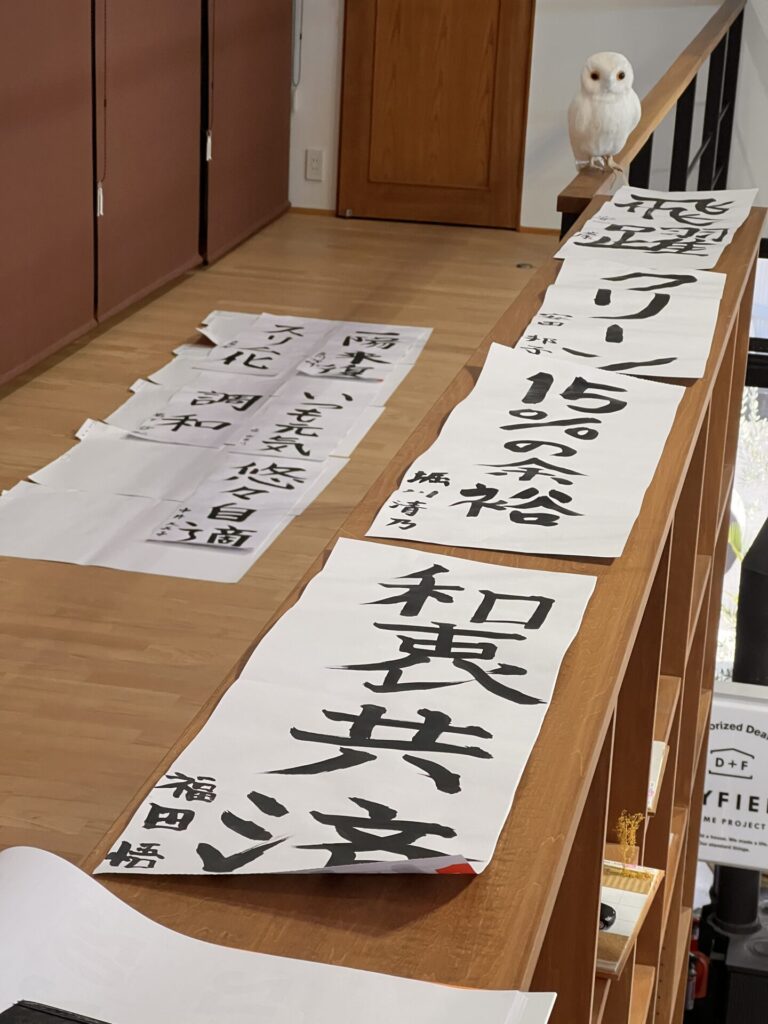 飛躍
クリーン
15%の余裕
堀川清乃
和衷共済
福田悟
一陽来復
スリム化
いつも元気
調和
悠々自適
orized Deal
D+F
YFIEL
ME PROJECT